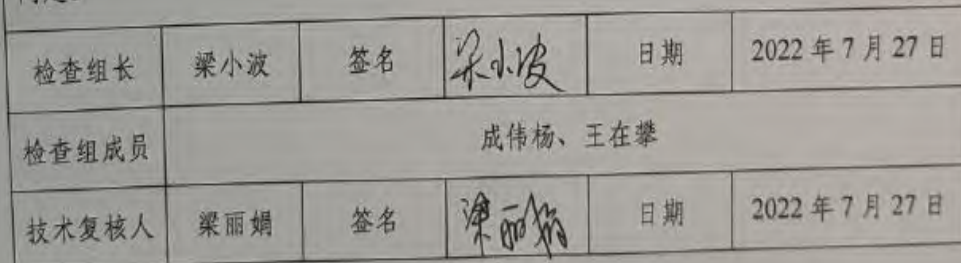 检查组长 梁小波 签名 梁小波 日期 2022年7月27日
检查组成员 成伟杨、王在攀
技术复核人 梁丽娟 签名 梁丽娟 日期 2022年7月27日